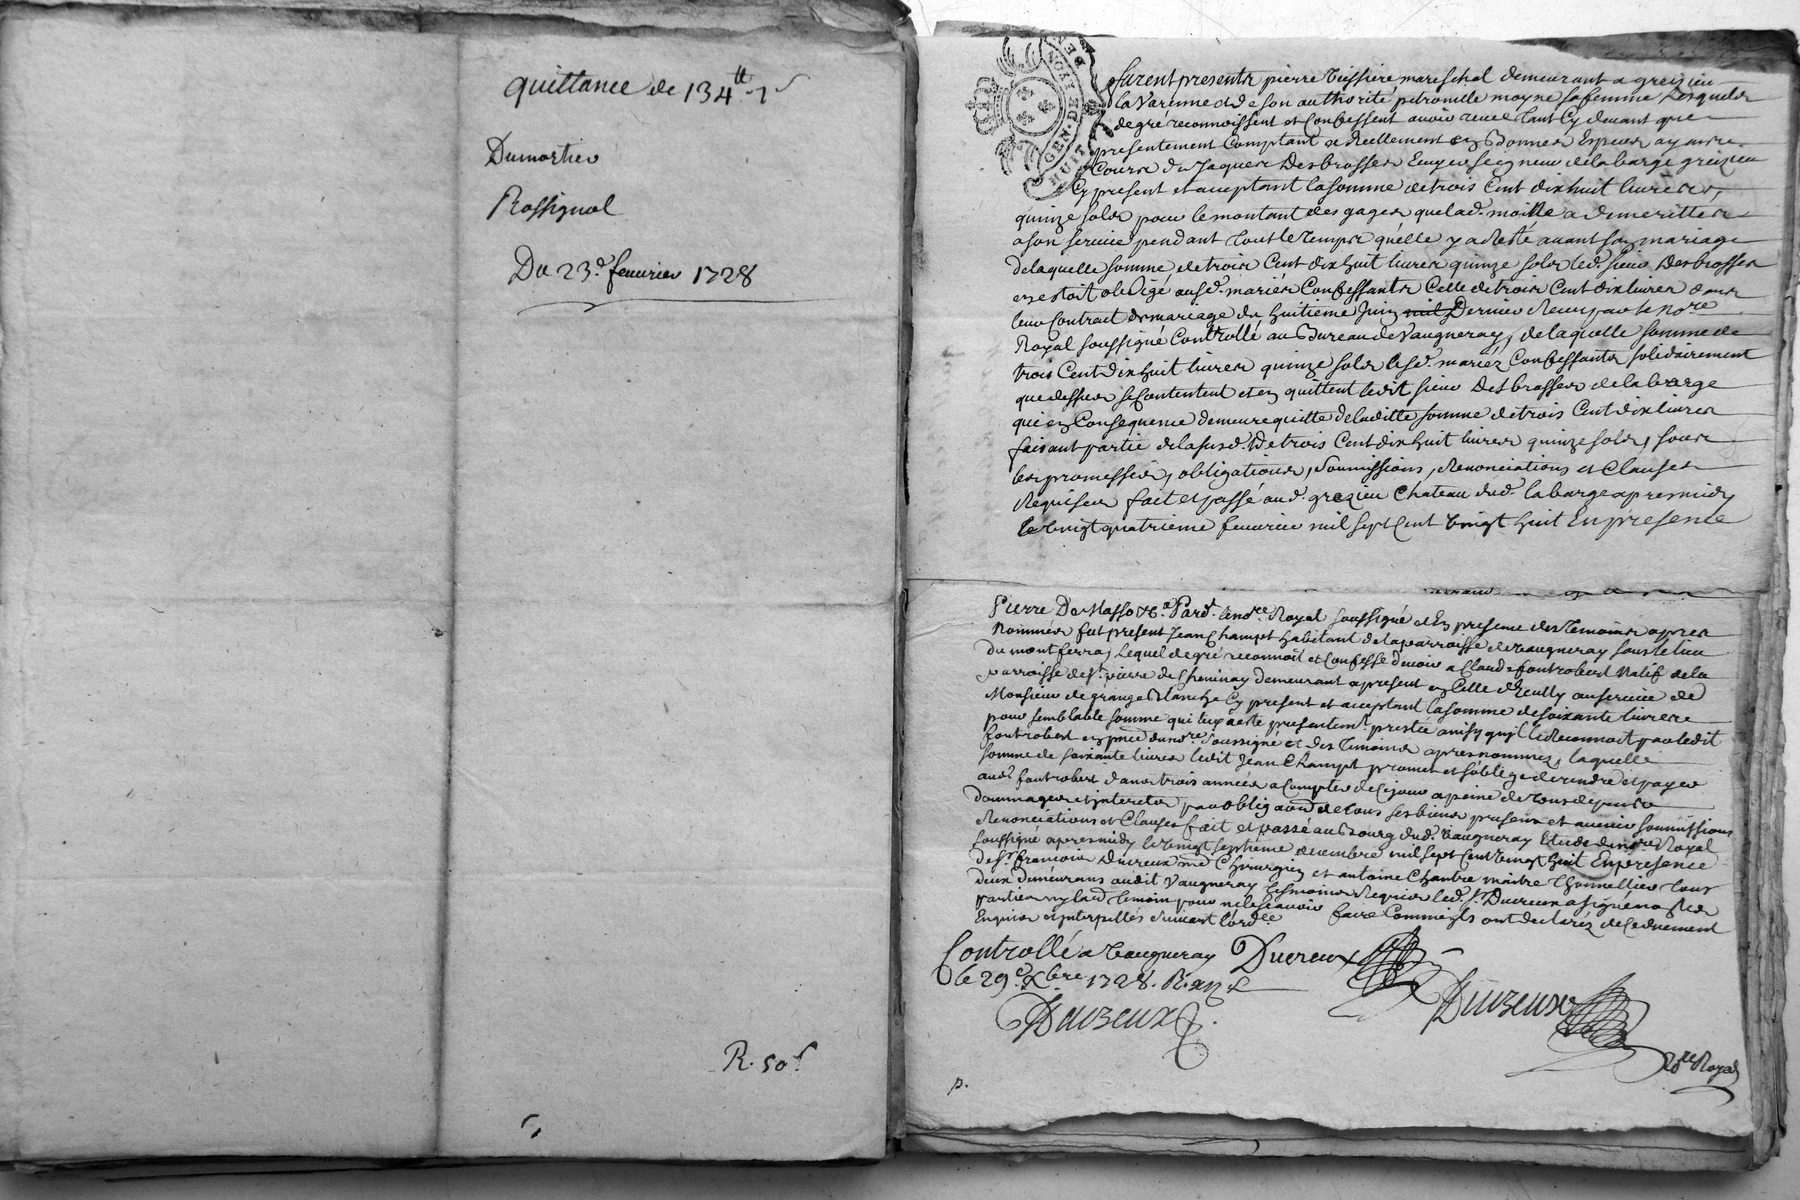 quittance de 134ᵗᵗ
Dumortier
Rossignol
Du 23.e feuurier 1728
R. 50 s
GEN. DE LYON
HUIT DEN
furent presents pierre Teissiere mareschal demeurant a greizieu
la Varenne et de son authorité petronille moyne sa femme Lesquels
de gré reconnoissent et Confessent auoir receu tant Cy deuant que
presentement Comptant et Reellement en Bonnes Especes ayant
Cours de Jaques Desbrosses Ecuyer seigneur de la barge greizieu
Cy present et acceptant la somme de trois Cent dix huit liures
quinze sols pour le montant des gages que lad. moille a demerittes
a son seruice pendant tout le temps qu'elle y a Resté auant son mariage
de laquelle somme de trois Cent dix huit liures quinze sols led. sieur Desbrosses
en estoit obligé ausd. mariés Confessants Celle de trois Cent dix liures dans
leur Contract de mariage du huitieme Juin mil Dernier Receu par le nore
Royal soussigné Controllé au Bureau de Vaugneray, de laquelle somme de
trois Cent dix huit liures quinze sols lesd. mariéz Confessants solidairement
que dessus se Contentent et en quittent ledit sieur Desbrosses de la barge
qui en Consequence demeure quitte de laditte somme de trois Cent dix liures
faisant partie de la susd. de trois Cent dix huit liures quinze sols, sous
les promesses, obligations, soumissions, Renonciations et Clauses
Requises fait et passé aud. grezieu Chateau dud. la barge apres midy
le vingt quatrieme feuurier mil sept Cent vingt huit En presence
Pardt. le nore Royal soussigné et En presence des Temoins apres
Nommés fut present Jean Champt habitant de la parroisse de vaugneray sous le lieu
du montferra, Lequel de gré reconnoit et Confesse deuoir a Claude fontrobert Natif de la
parroisse de St. pierre de Cheuinay demeurant a present en Celle d'Ecully au seruice de
Monsieur de grange Blanche Cy present et acceptant la somme de soixante liures
pour semblable somme qui luy a esté presentemt. prestée ainsy qu'il le Reconnoit par ledit
fontrobert en pnce dud. nore soussigné et des Temoins apres nommez, laquelle
somme de soixante liures ledit Jean Champt promet et s'oblige de rendre et payer
aud. fontrobert dans trois années a Compter de Ce jour a peine de tous depens
dommages et interets par obligaon de tous ses biens presens et auenir soumissions
Renonciations et Clauses fait et passé au Bourg dud. Vaugneray Etude du nore Royal
soussigné apres midy le vingt septieme decembre mil sept Cent vingt huit En presence
de sr. francois Dureux me Chirurgien et antoine Chantre maitre Thonnellier tous
deux demeurans audit Vaugneray Tesmoins Requis led. sr. Dureux a signé non les
parties ny laud. Temoin pour ne le scauoir faire Comme ils ont declaréz de Ce duement
Enquis et Interpellés suiuant l'ordce
Controllé a Vaugneray
le 29e Xbre 1728. R. six s
Dureux
Dureux
Dureux
Nore Royal
p.